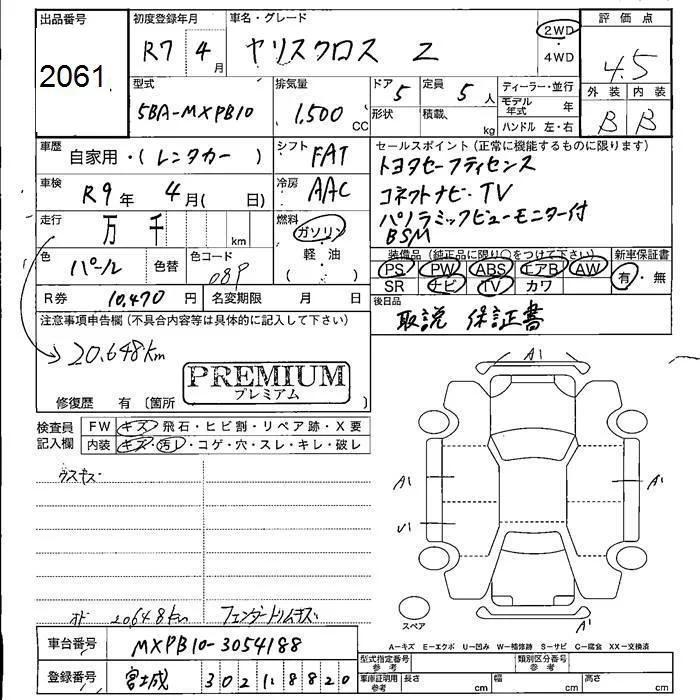 出品番号
2061
初度登録年月
R7 4月
車名・グレード
ヤリスクロス Z
2WD
・
4WD
評価点
4.5
外装 内装
B B
型式
5BA-MXPB10
排気量
1,500 CC
ドア 5
形状
定員 5 人
積載 kg
ディーラー・並行
モデル年式 年
ハンドル 左・右
車歴 自家用・(レンタカー)
シフト FAT
車検 R9年 4月( 日)
冷房 AAC
走行 万 千 km
燃料 ガソリン
軽・油
( )
色 パール 色替
色コード 089
R券 10,470 円
名変期限 月 日
セールスポイント(正常に機能するものに限ります)
トヨタセーフティセンス
コネクトナビ・TV
パノラミックビューモニター付
BSM
装備品(純正品に限り○をつけて下さい)
新車保証書
PS PW ABS エアB AW
SR ナビ TV カワ
有・無
後日品
取説 保証書
注意事項申告欄(不具合内容等は具体的に記入して下さい)
20,648km
PREMIUM
プレミアム
修復歴 有〔箇所 〕
検査員記入欄
FW キズ・飛石・ヒビ割・リペア跡・X要
内装 キズ・汚レ・コゲ・穴・スレ・キレ・破レ
ウスキズ
オド 20648km フェンダートリムキズ
A1
A1
A1
U1
A1
スペア
A-キズ E-エクボ U-凹み W-補修跡 S-サビ C-腐食 XX-交換済
車台番号 MXPB10-3054188
登録番号 宮城 302 わ 8820
型式指定番号 参考
類別区分番号 参考
車庫証明用 参考
長さ cm
幅 cm
高さ cm